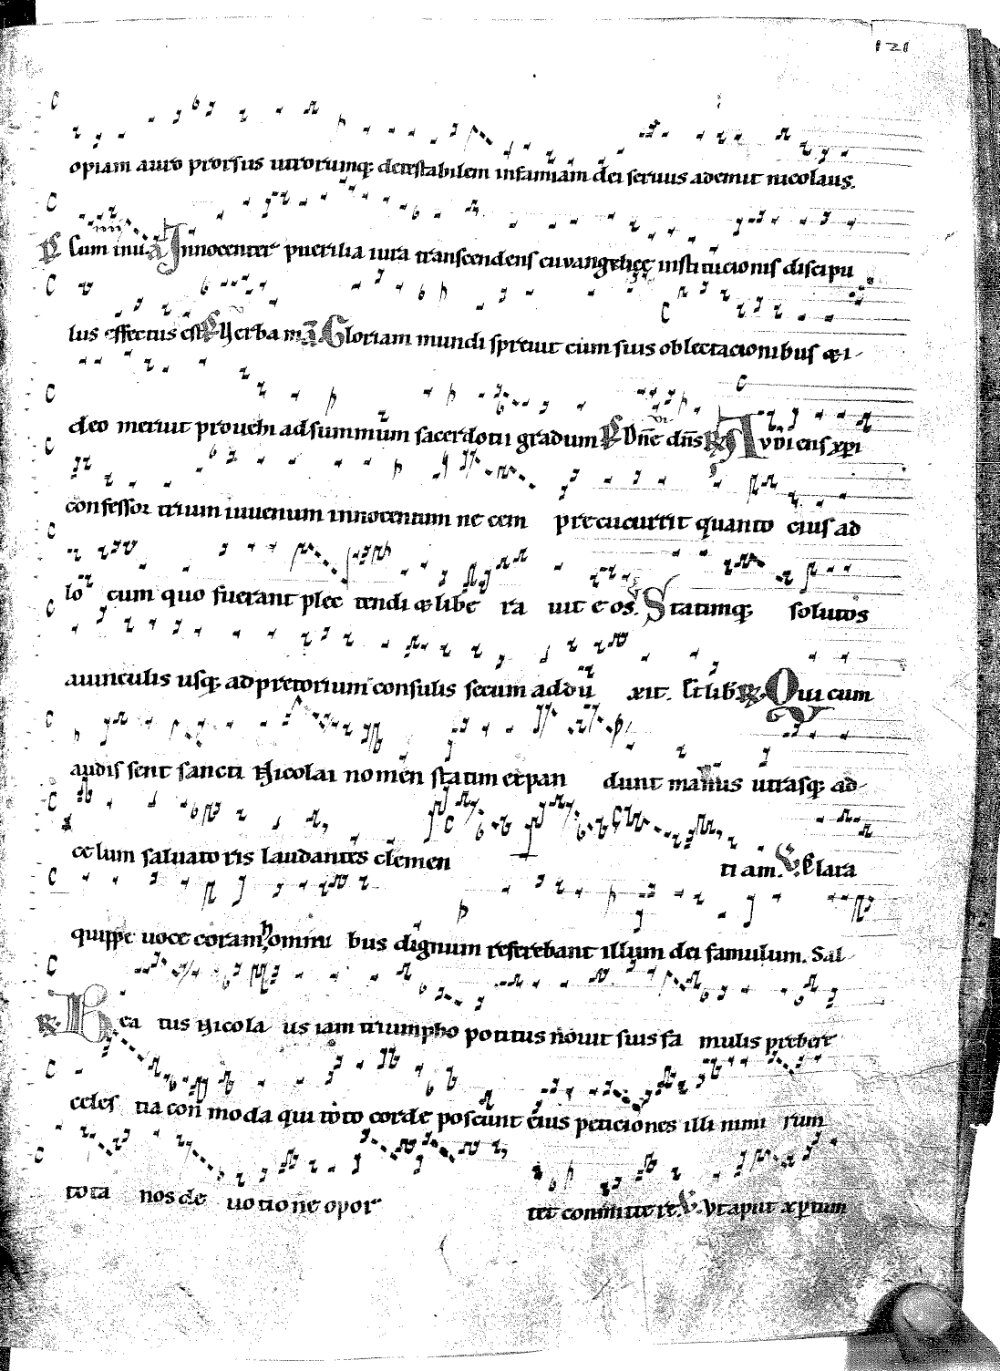 121
opiam auro prorsus virorumq; detestabilem infamiam dei servus ademit nicolaus.
℟ Cum invi. A Innocenter puerilia iura transcendens euvangelicę institucionis discipu
lus effectus est. Verba m. A Gloriam mundi sprevit cum suis oblectacionibus & i-
deo meruit provehi ad summum sacerdotii gradum Dn̄e dn̄s ℟ Audiens xp̄i
confessor trium iuvenum innocentum necem precucurrit quanto cius ad
lo cum quo fuerant plec tendi & libe ra vit eos. Statimq; solutos
a vinculis usq; ad pretorium consulis secum addu xit. Et lib ℟ Qui cum
audis sent sancti Nicolai nomen statim expan dunt manus utrasq; ad-
celum salvato ris laudantes clemen tiam. V. Clara
quippe voce coram omni bus dignum referebant illum dei famulum. Sal-
℟ Bea tus Nicola us iam triumpho potitus novit suis fa mulis prebere
celes tia com̄ moda qui toto corde poscunt eius peticiones illi nimi rum
tota nos de votione opor tet committere. V. Ut aput xp̄tum